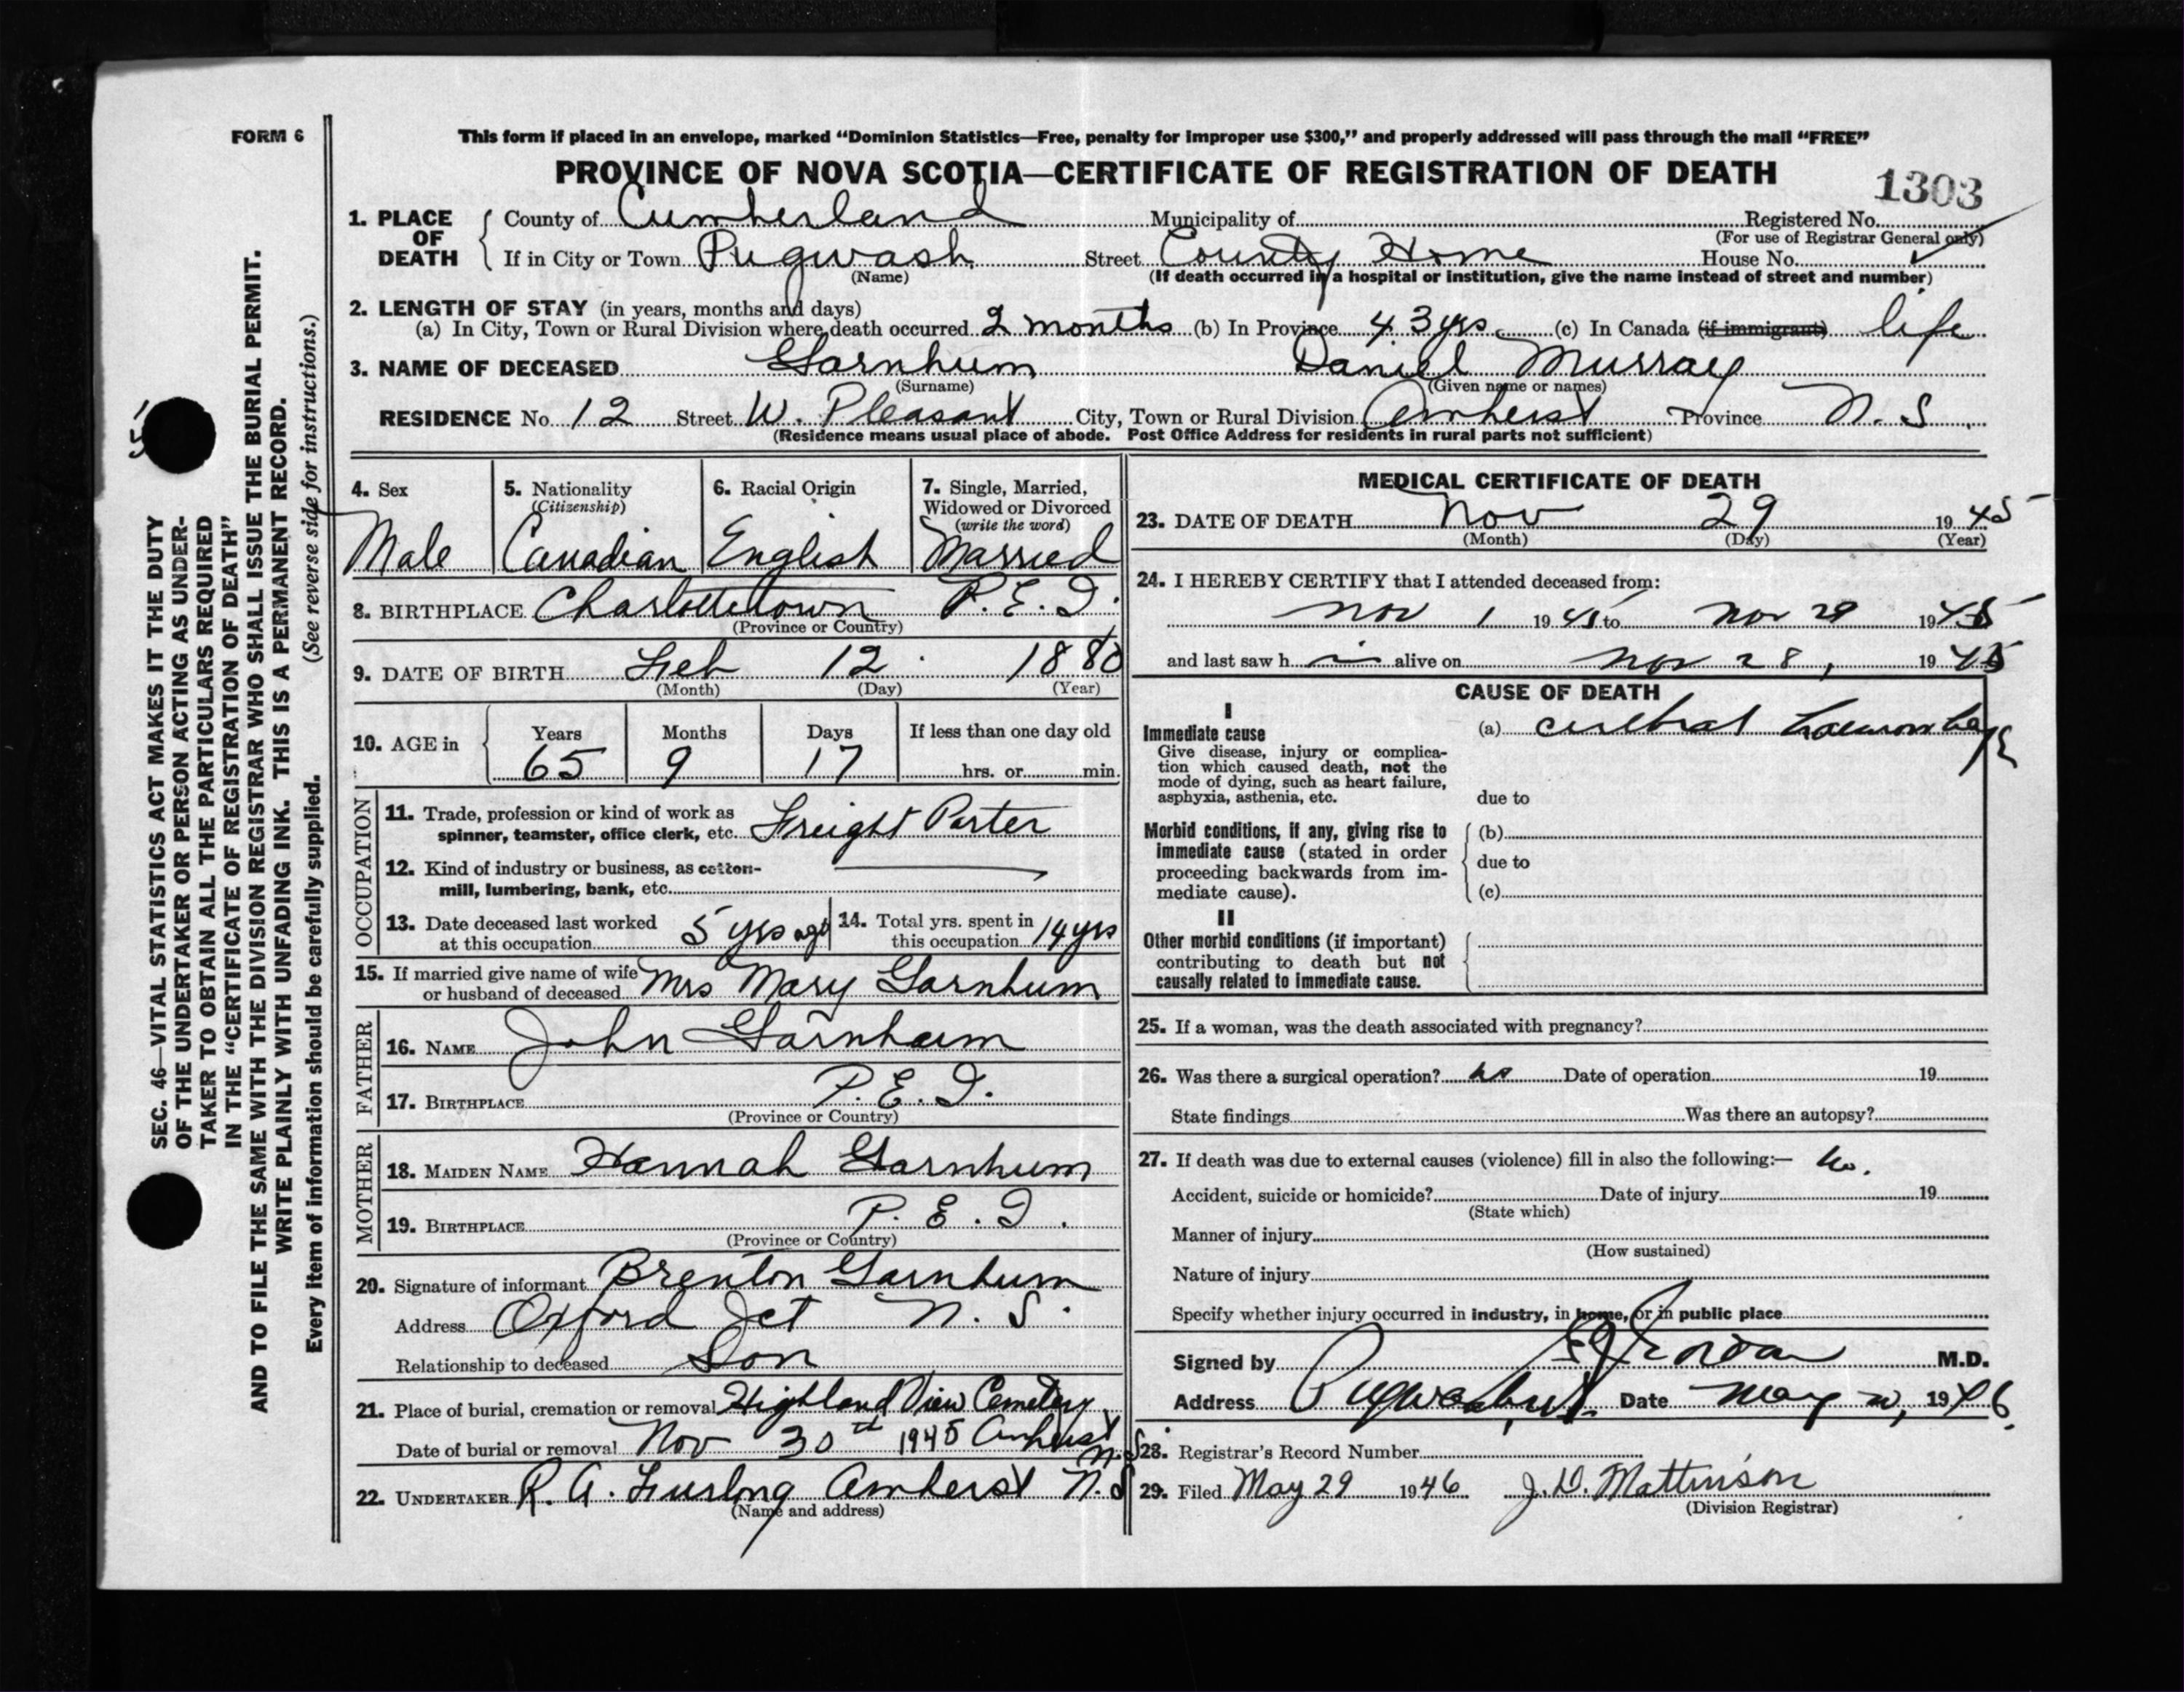 FORM 6
This form if placed in an envelope, marked “Dominion Statistics—Free, penalty for improper use $300,” and properly addressed will pass through the mail “FREE”
PROVINCE OF NOVA SCOTIA—CERTIFICATE OF REGISTRATION OF DEATH
1303
1. PLACE OF DEATH
County of Cumberland Municipality of Registered No.
(For use of Registrar General only)
If in City or Town Pugwash Street County Home House No.
(Name) (If death occurred in a hospital or institution, give the name instead of street and number)
2. LENGTH OF STAY (in years, months and days)
(a) In City, Town or Rural Division where death occurred 2 months (b) In Province 43 yrs. (c) In Canada (if immigrant) life
3. NAME OF DECEASED Garnhum Daniel Murray
(Surname) (Given name or names)
RESIDENCE No. 12 Street W. Pleasant City, Town or Rural Division Amherst Province N. S.
(Residence means usual place of abode. Post Office Address for residents in rural parts not sufficient)
4. Sex
Male
5. Nationality
(Citizenship)
Canadian
6. Racial Origin
English
7. Single, Married,
Widowed or Divorced
(write the word)
Married
8. BIRTHPLACE Charlottetown P. E. I.
(Province or Country)
9. DATE OF BIRTH Feb 12 1880
(Month) (Day) (Year)
10. AGE in
Years Months Days If less than one day old
65 9 17 hrs. or min.
OCCUPATION
11. Trade, profession or kind of work as
spinner, teamster, office clerk, etc. Freight Porter
12. Kind of industry or business, as cotton-
mill, lumbering, bank, etc.
13. Date deceased last worked
at this occupation 5 yrs ago
14. Total yrs. spent in
this occupation 14 yrs
15. If married give name of wife
or husband of deceased Mrs Mary Garnhum
FATHER
16. NAME John Garnhum
17. BIRTHPLACE P. E. I.
(Province or Country)
MOTHER
18. MAIDEN NAME Hannah Garnhum
19. BIRTHPLACE P. E. I.
(Province or Country)
20. Signature of informant Brenton Garnhum
Address Oxford Jct N. S.
Relationship to deceased Son
21. Place of burial, cremation or removal Highland View Cemetery
Date of burial or removal Nov 30th 1945 Amherst N.S
22. UNDERTAKER R. A. Furlong Amherst N.S
(Name and address)
MEDICAL CERTIFICATE OF DEATH
23. DATE OF DEATH Nov 29 1945
(Month) (Day) (Year)
24. I HEREBY CERTIFY that I attended deceased from:
Nov 1 1945 to Nov 29 1945
and last saw h im alive on Nov 28, 1945
CAUSE OF DEATH
I
Immediate cause
Give disease, injury or complica-
tion which caused death, not the
mode of dying, such as heart failure,
asphyxia, asthenia, etc.
(a) cerebral haemorrhage
due to
Morbid conditions, if any, giving rise to
immediate cause (stated in order
proceeding backwards from im-
mediate cause).
(b)
due to
(c)
II
Other morbid conditions (if important)
contributing to death but not
causally related to immediate cause.
25. If a woman, was the death associated with pregnancy?
26. Was there a surgical operation? no Date of operation 19
State findings Was there an autopsy?
27. If death was due to external causes (violence) fill in also the following:— No.
Accident, suicide or homicide? Date of injury 19
(State which)
Manner of injury
(How sustained)
Nature of injury
Specify whether injury occurred in industry, in home, or in public place
Signed by M.D.
Address Pugwash Date May 1946.
28. Registrar's Record Number
29. Filed May 29 1946 J. D. Mattinson
(Division Registrar)
SEC. 46—VITAL STATISTICS ACT MAKES IT THE DUTY
OF THE UNDERTAKER OR PERSON ACTING AS UNDER-
TAKER TO OBTAIN ALL THE PARTICULARS REQUIRED
IN THE “CERTIFICATE OF REGISTRATION OF DEATH”
AND TO FILE THE SAME WITH THE DIVISION REGISTRAR WHO SHALL ISSUE THE BURIAL PERMIT.
WRITE PLAINLY WITH UNFADING INK. THIS IS A PERMANENT RECORD.
Every item of information should be carefully supplied. (See reverse side for instructions.)